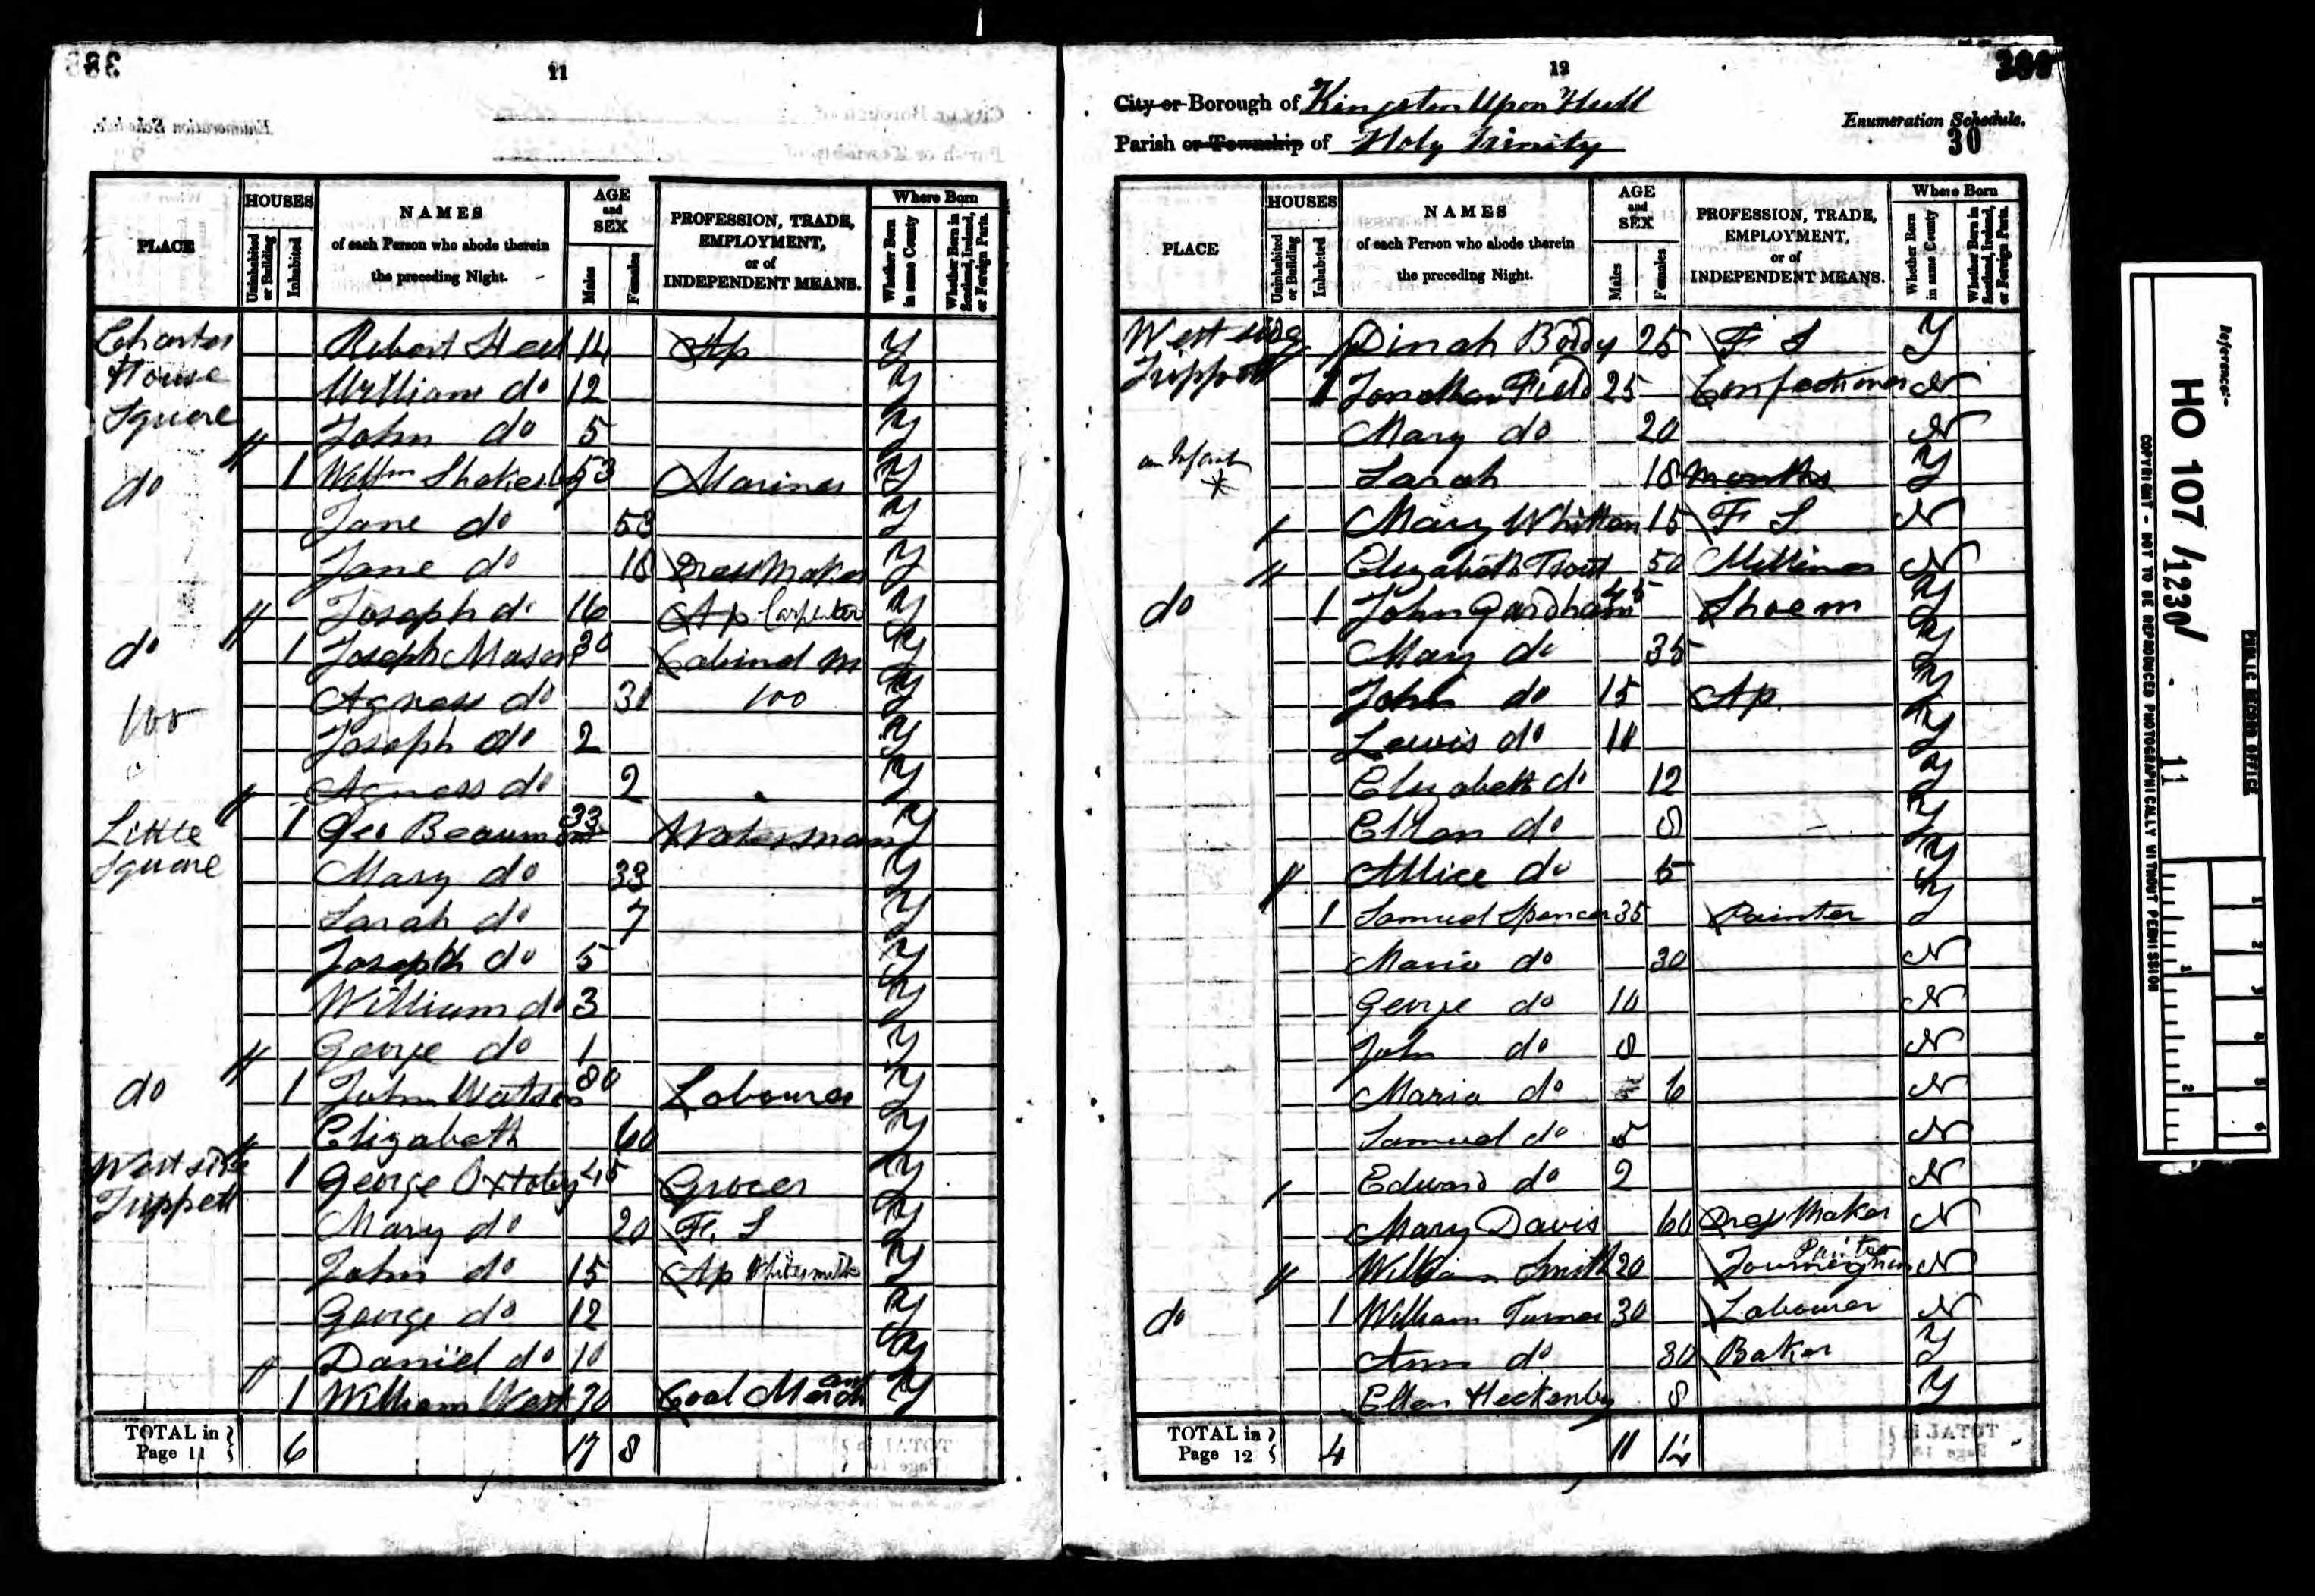 11
PLACE
HOUSES
Uninhabited or Building
Inhabited
NAMES
of each Person who abode therein
the preceding Night.
AGE
and
SEX
Males
Females
PROFESSION, TRADE,
EMPLOYMENT,
or of
INDEPENDENT MEANS.
Where Born
Whether Born in same County
Whether Born in Scotland, Ireland, or Foreign Parts.
Charter Robert Steel 14 Ap Y
House William do 12 Y
Square John do 5 Y
do 1 Willm 53 Mariner Y
Jane do 53 Y
Jane do 18 Dress Maker Y
Joseph do 16 Ap Carpenter Y
do 1 Joseph Mason 30 Cabinet M Y
Agness do 31 100 Y
100 Joseph do 2 Y
Agness do 2 Y
Little 1 Geo Beaumont 33 Waterman Y
Square Mary do 33 Y
Sarah do 7 Y
Joseph do 5 Y
William do 3 Y
George do 1 Y
do 1 John Watson 80 Labourer Y
Elizabeth 60 Y
West side 1 George Oxtoby 45 Grocer Y
Trippett Mary do 20 F. S Y
John do 15 Ap Whitesmith Y
George do 12 Y
Daniel do 10 Y
1 William West 70 Coal Merch Y
TOTAL in Page 11 6 17 8
12
City or Borough of Kingston Upon Hull
Parish or Township of Holy Trinity
Enumeration Schedule.
30
PLACE
HOUSES
Uninhabited or Building
Inhabited
NAMES
of each Person who abode therein
the preceding Night.
AGE
and
SEX
Males
Females
PROFESSION, TRADE,
EMPLOYMENT,
or of
INDEPENDENT MEANS.
Where Born
Whether Born in same County
Whether Born in Scotland, Ireland, or Foreign Parts.
West side Dinah Boddy 25 F S Y
Trippett 1 Jonathan Field 25 Confectioner N
Mary do 20 N
an Infant * Sarah 18 months Y
Mary Whitton 15 F S N
Elizabeth 50 Milliner N
do 1 John Gardham 45 Shoe m Y
Mary do 35 Y
John do 15 Ap Y
Lewis do 11 Y
Elizabeth do 12 Y
Ellen do 8 Y
Allice do 5 Y
1 Samuel Spencer 35 Painter Y
Maria do 30 N
George do 10 N
John do 8 N
Maria do 6 N
Samuel do 5 N
Edward do 2 N
Mary Davis 60 Dress Maker N
William Smith 20 Painter Journeyman N
do 1 William Turner 30 Labourer N
Ann do 30 Baker Y
Ellen Heckenby 8 Y
TOTAL in Page 12 4 11 14
Reference:-
HO 107/1230/11
PUBLIC RECORD OFFICE
COPYRIGHT - NOT TO BE REPRODUCED PHOTOGRAPHICALLY WITHOUT PERMISSION